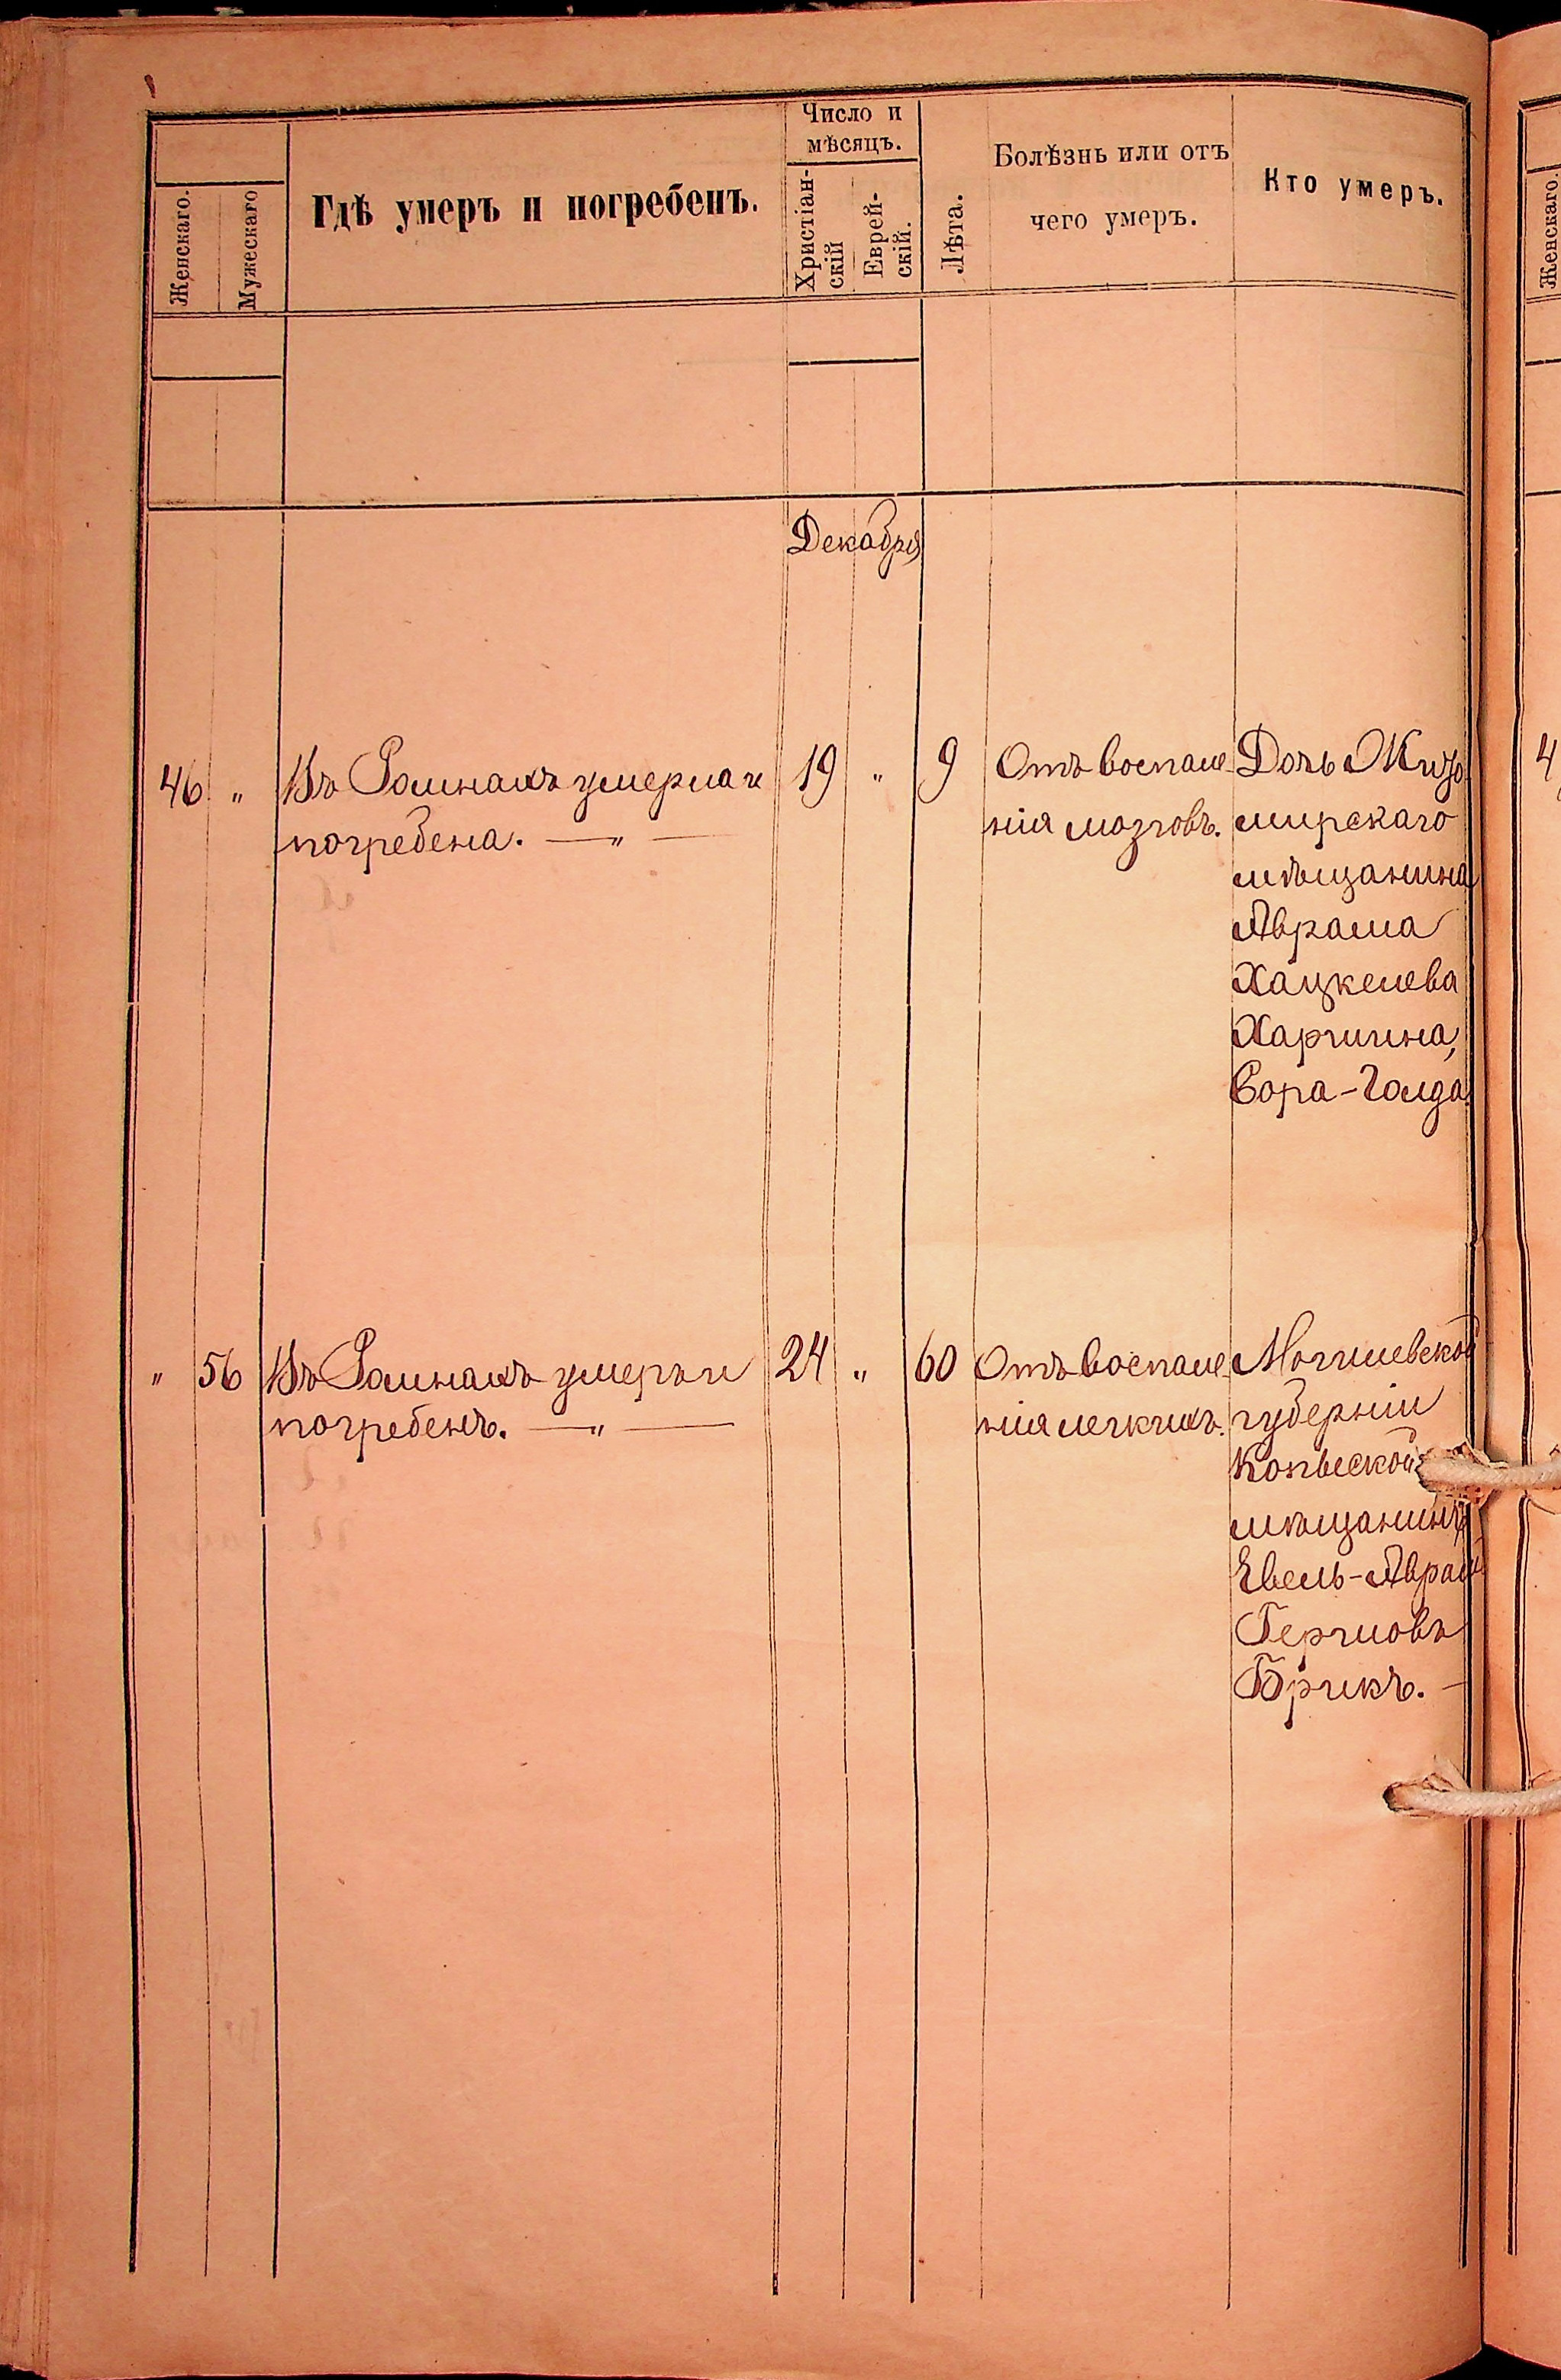 Женскаго.
Мужескаго
Гдѣ умеръ и погребенъ.
Число и
мѣсяцъ.
Христіан-
скій
Еврей-
скій.
Лѣта.
Болѣзнь или отъ
чего умеръ.
Кто умеръ.
Женскаго.
Декабря
46 " Въ Ромнахъ умерла и
погребена. — " —
19 " 9
Отъ воспале-
нія мозговъ.
Дочь
мирскаго
мѣщанина
Аврама
Хацкелева
Харигина,
Сора-Голда.
4
" 56 Въ Ромнахъ умеръ и
погребенъ. — " —
24 " 60
Отъ воспале-
нія легкихъ.
Могилевской
губерніи
Копыской
мѣщанинъ
Евель-Аврам
Герцовъ
Брикъ. —